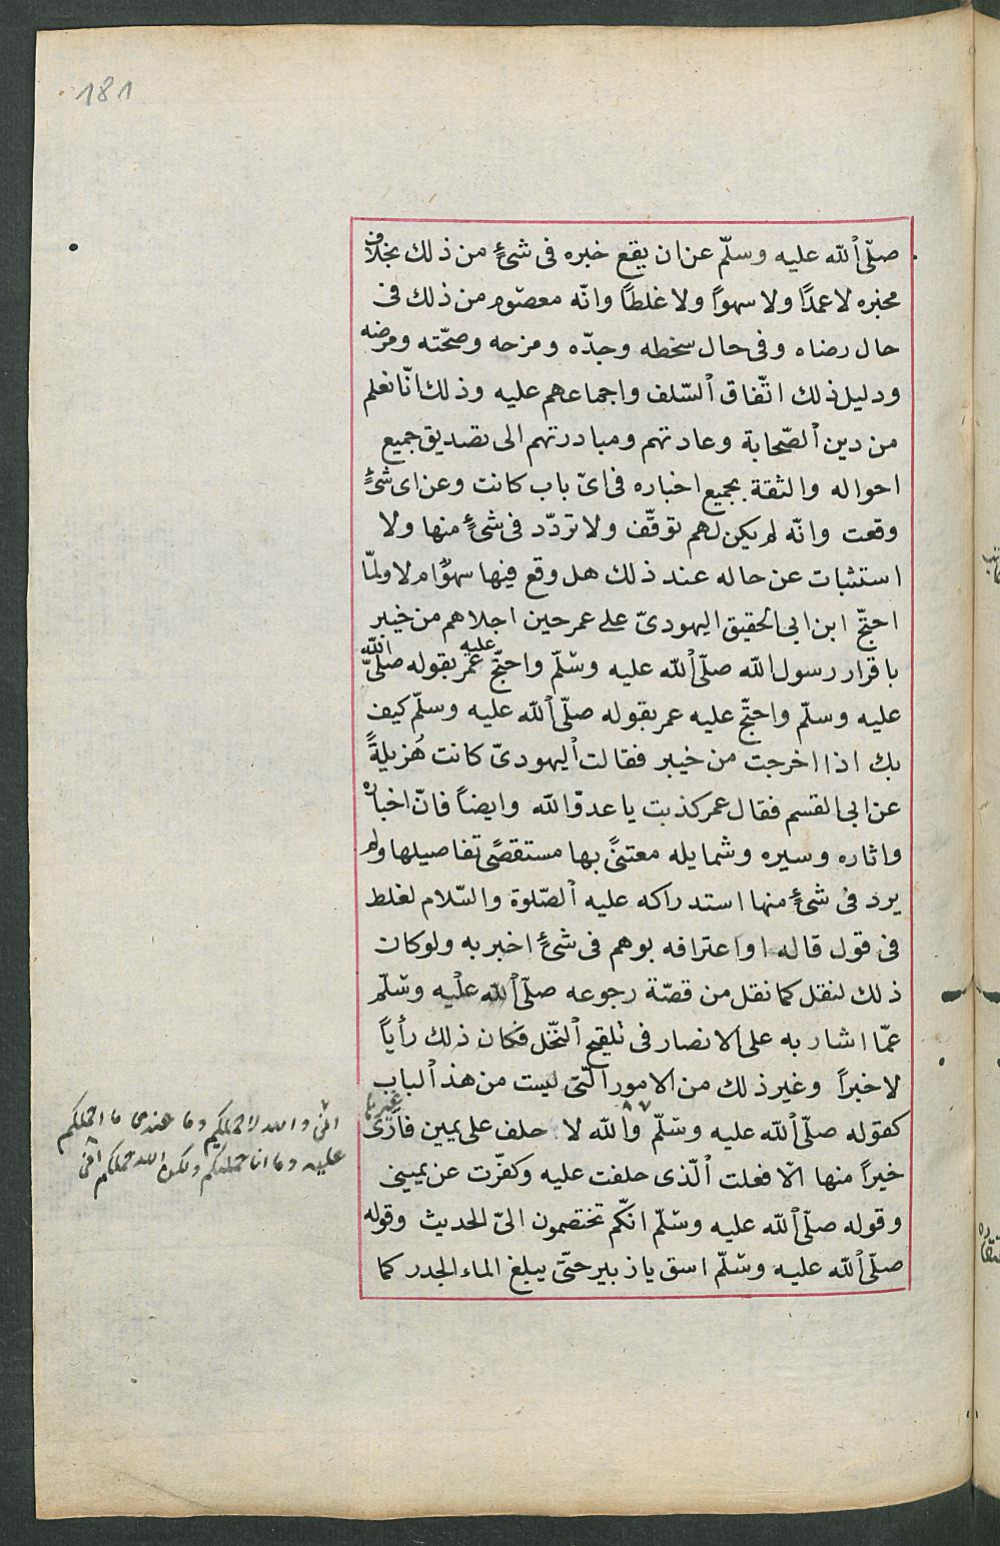 181
صلّى الله عليه وسلّم عن ان يقع خبره فى شئٍ من ذلك بخلاف
مخبره لا عمدًا ولا سهوًا ولا غلطًا وانّه معصوم من ذلك فى
حال رضاه وفى حال سخطه وجدّه ومزحه وصحّته ومرضه
ودليل ذلك اتّفاق السّلف واجماعهم عليه وذلك انّا نعلم
من دين الصّحابة وعادتهم ومبادرتهم الى تصديق جميع
احواله والثقة بجميع اخباره فى اىّ باب كانت وعن اى شئٍ
وقعت وانّه لم يكن لهم توقّف ولا تردّد فى شئٍ منها ولا
استثبات عن حاله عند ذلك هل وقع فيها سهوٌ ام لا ولمّا
احتجّ ابن ابى الحقيق اليهودىّ على عمر حين اجلاهم من خيبر
باقرار رسول الله صلّى الله عليه وسّلم واحتجّ عليه عمر بقوله صلّى الله
عليه وسلّم واحتجّ عليه عمر بقوله صلّى الله عليه وسلّم كيف
بك اذا اخرجت من خيبر فقالت اليهودىّ كانت هُزيلةً
عن ابى القسم فقال عمر كذبت يا عدوّ الله وايضاً فانّ اخباره
واثاره وسيره وشمايله معتنًى بها مستقصًى تفاصيلها ولم
يرد فى شئٍ منها استدراكه عليه الصّلوة والسّلام لغلط
فى قول قاله او اعترافه بوهم فى شئٍ اخبر به ولو كان
ذلك لنقل كما نقل من قصّة رجوعه صلّى الله عليه وسّلم
عمّا اشار به على الانصار فى تلقيح النّخل فكان ذلك رأياً
لا خبراً وغير ذلك من الامور الّتى ليست من هذ الباب
كقوله صلّى الله عليه وسّلم والله لا حلف على يمين فارى غيرها
خيراً منها الاّ فعلت الّذى حلفت عليه وكفّرت عن يمينى
وقوله صلّى الله عليه وسّلم انّكم تختصمون الىّ الحديث وقوله
صلّى الله عليه وسّلم اسق يا زبير حتّى يبلغ الماء الجدر كما
انى والله لا احملكم وما عندى ما احملكم
عليه وما انا حملتكم ولكن الله حملكم انى